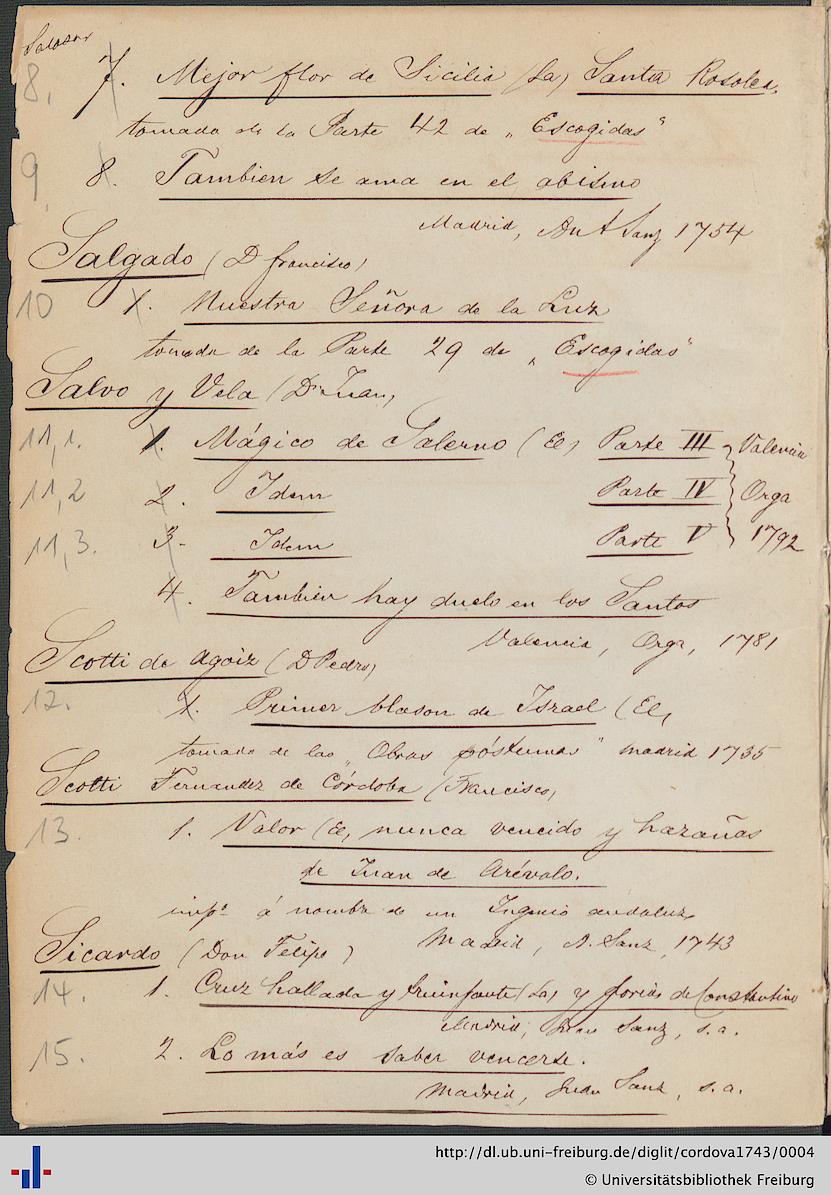 Salazar
8. 7. Mejor flor de Sicilia (La) Santa Rosolea,
tomada de la Parte 42 de „Escogidas“
9. 8. Tambien se ama en el abismo
Madrid, Ant Sanz 1754
Salgado (D francisco)
10 1. Nuestra Señora de la Luz
tomada de la Parte 29 de „Escogidas“
Salvo y Vela (Dn Juan)
11,1. 1. Mágico de Salerno (El) Parte III Valencia
11,2 2. Idem Parte IV Orga
11,3. 3. Idem Parte V 1792
4. Tambien hay duelo en los Santos
Valencia, Orga, 1781
Scotti de Agoiz (D Pedro)
12. 1. Primer blason de Israel (El)
tomada de las „Obras póstumas“ Madrid 1735
Scotti Fernandez de Córdoba (Francisco)
13. 1. Valor (El) nunca vencido y hazañas
de Juan de Arévalo.
impa á nombre de un Ingenio andaluz
Madrid, A. Sanz, 1743
Sicardo (Don Felipe)
14. 1. Cruz hallada y triunfante (La) y glorias de Constantino
Madrid, Juan Sanz, s.a.
15. 2. Lo más es saber vencerse.
Madrid, Juan Sanz, s.a.
http://dl.ub.uni-freiburg.de/diglit/cordova1743/0004
© Universitätsbibliothek Freiburg